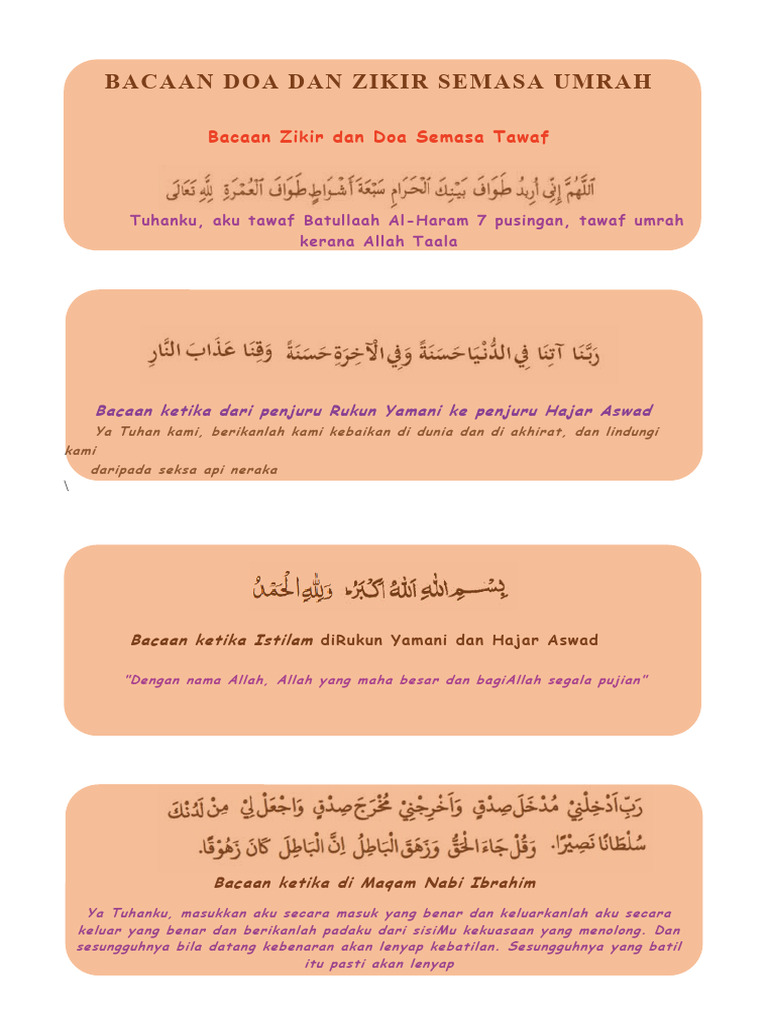 BACAAN DOA DAN ZIKIR SEMASA UMRAH
Bacaan Zikir dan Doa Semasa Tawaf
اَللّٰهُمَّ إِنِّي أُرِيدُ طَوَافَ بَيْتِكَ الْحَرَامِ سَبْعَةَ أَشْوَاطٍ طَوَافَ الْعُمْرَةِ لِلّٰهِ تَعَالَى
Tuhanku, aku tawaf Batullaah Al-Haram 7 pusingan, tawaf umrah
kerana Allah Taala
رَبَّنَا آتِنَا فِي الدُّنْيَا حَسَنَةً وَفِي الْآخِرَةِ حَسَنَةً وَقِنَا عَذَابَ النَّارِ
Bacaan ketika dari penjuru Rukun Yamani ke penjuru Hajar Aswad
Ya Tuhan kami, berikanlah kami kebaikan di dunia dan di akhirat, dan lindungi
kami
daripada seksa api neraka
\
بِسْمِ اللهِ اَللهُ اَكْبَرُ وَلِلّٰهِ الْحَمْدُ
Bacaan ketika Istilam diRukun Yamani dan Hajar Aswad
"Dengan nama Allah, Allah yang maha besar dan bagiAllah segala pujian"
رَبِّ اَدْخِلْنِيْ مُدْخَلَ صِدْقٍ وَاَخْرِجْنِيْ مُخْرَجَ صِدْقٍ وَاجْعَلْ لِيْ مِنْ لَدُنْكَ
سُلْطَانًا نَصِيْرًا. وَقُلْ جَاءَ الْحَقُّ وَزَهَقَ الْبَاطِلُ اِنَّ الْبَاطِلَ كَانَ زَهُوْقًا.
Bacaan ketika di Maqam Nabi Ibrahim
Ya Tuhanku, masukkan aku secara masuk yang benar dan keluarkanlah aku secara
keluar yang benar dan berikanlah padaku dari sisiMu kekuasaan yang menolong. Dan
sesungguhnya bila datang kebenaran akan lenyap kebatilan. Sesungguhnya yang batil
itu pasti akan lenyap